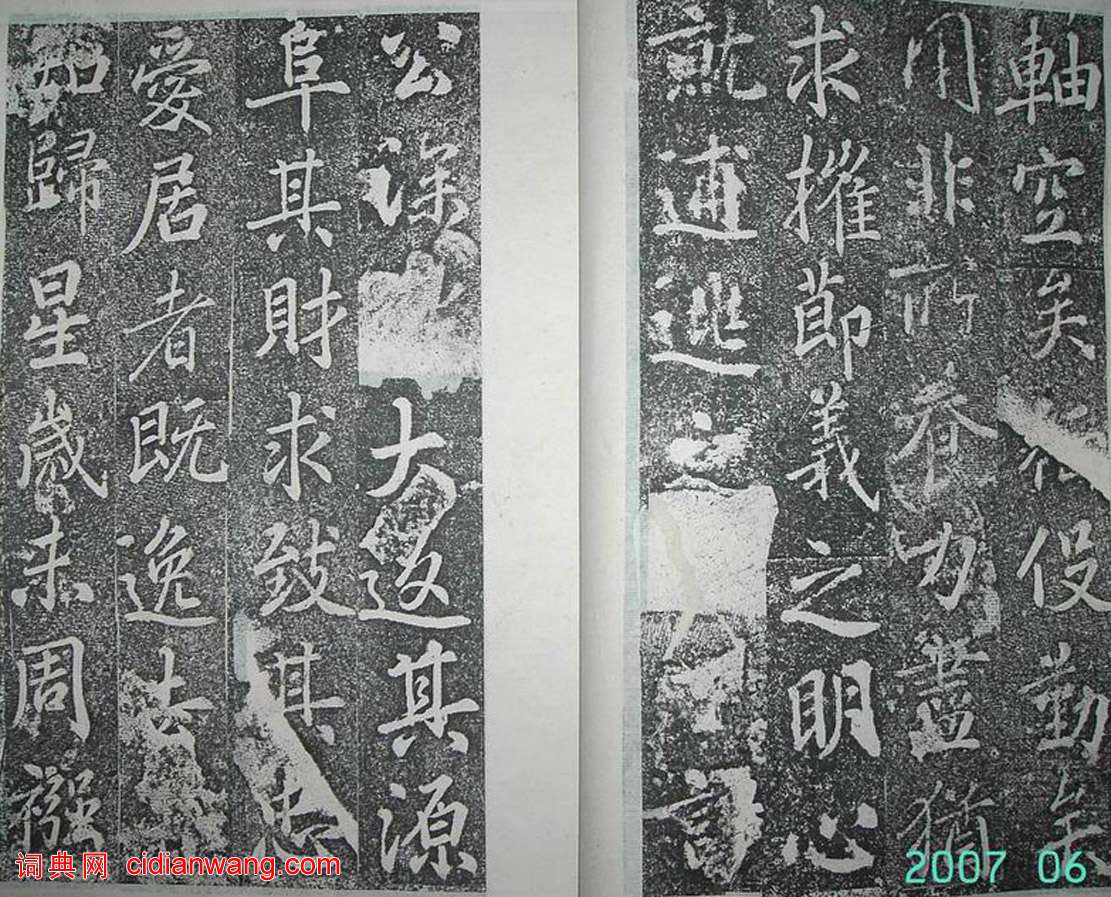 軸空矣役勤矣
用非所養力盡猶
求摧節義之明心
就逋逃之計
公深大返其源
阜其財求致其忠
愛居者既逸去
如歸星歲未周襁
词典网 cidianwang.com
2007 06